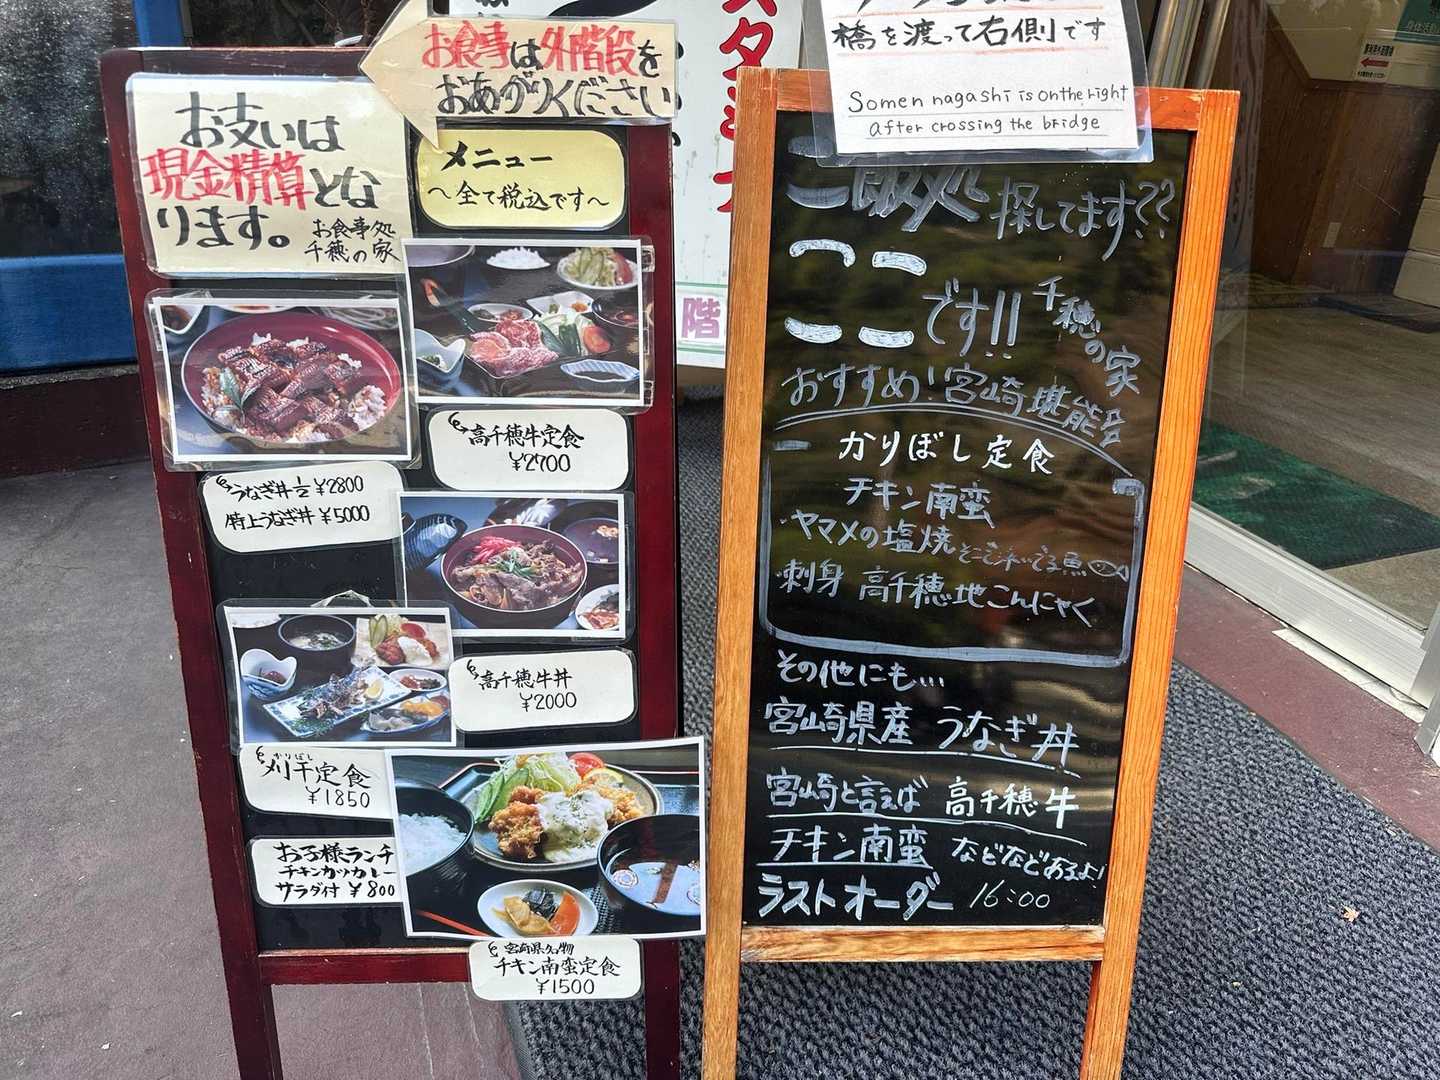 お食事は外階段を
おあがりください
お支いは
現金精算とな
ります。
お食事処
千穂の家
メニュー
～全て税込です～
高千穂牛定食
¥2700
うなぎ丼½ ¥2800
特上うなぎ丼 ¥5000
高千穂牛丼
¥2000
かりぼし
刈干定食
¥1850
お子様ランチ
チキンカツカレー
サラダ付 ¥800
宮崎県名物
チキン南蛮定食
¥1500
階
橋を渡って右側です
Somen nagashi is on the right
after crossing the bridge
ご飯処 探してます??
ここです!!
千穂の家
おすすめ!宮崎堪能
かりぼし定食
チキン南蛮
・ヤマメの塩焼
・刺身 高千穂地こんにゃく
その他にも…
宮崎県産 うなぎ丼
宮崎と言えば 高千穂牛
チキン南蛮 などなどあるよ!
ラストオーダー 16:00